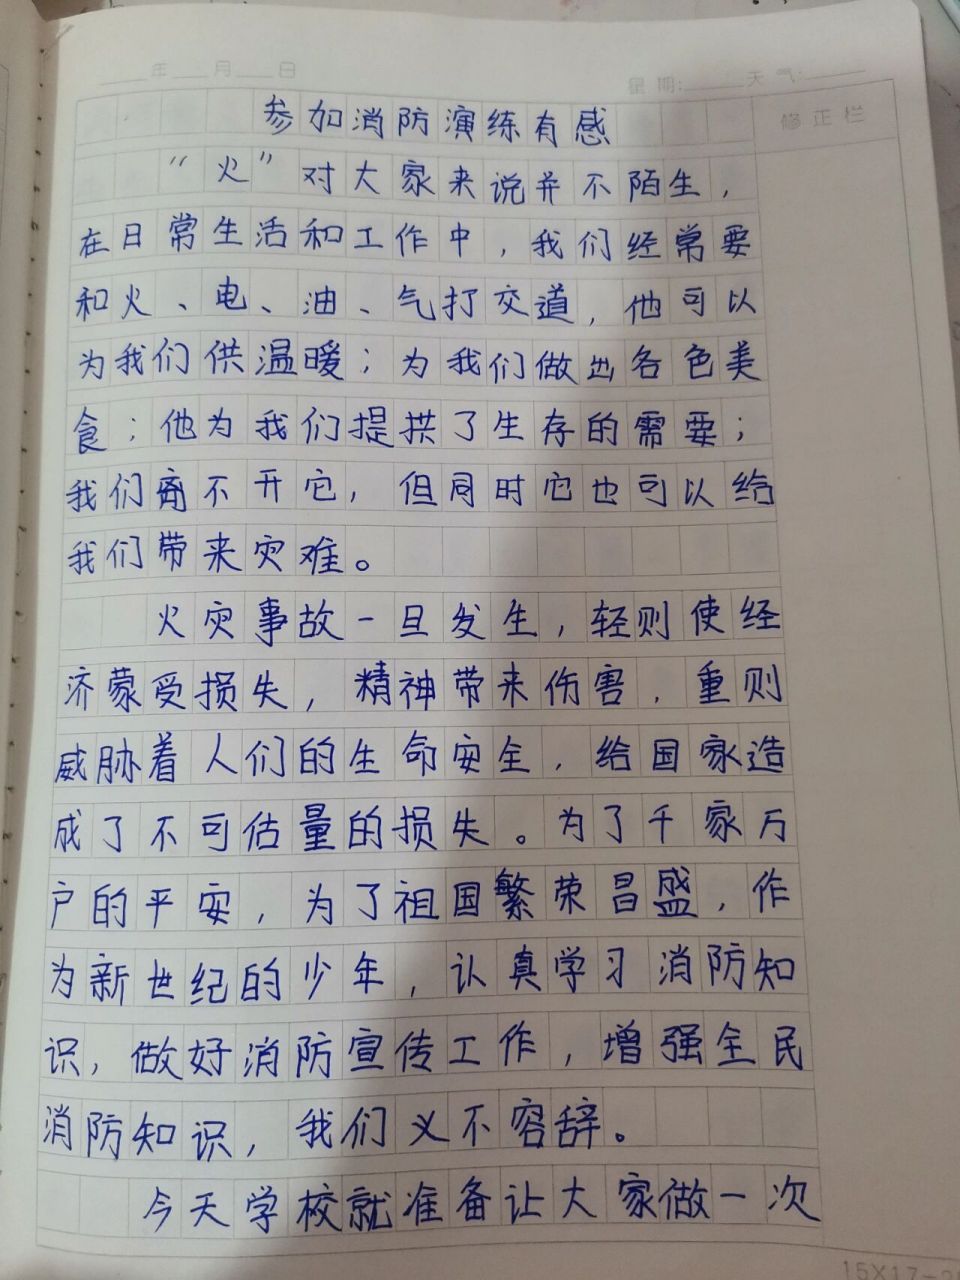 年 月 日
星期: 天气:
修正栏
参加消防演练有感
“火”对大家来说并不陌生，
在日常生活和工作中，我们经常要
和火、电、油、气打交道，他可以
为我们供温暖；为我们做出各色美
食；他为我们提拱了生存的需要；
我们离不开它，但同时它也可以给
我们带来灾难。
火灾事故一旦发生，轻则使经
济蒙受损失，精神带来伤害，重则
威胁着人们的生命安全，给国家造
成了不可估量的损失。为了千家万
户的平安，为了祖国繁荣昌盛，作
为新世纪的少年，认真学习消防知
识，做好消防宣传工作，增强全民
消防知识，我们义不容辞。
今天学校就准备让大家做一次